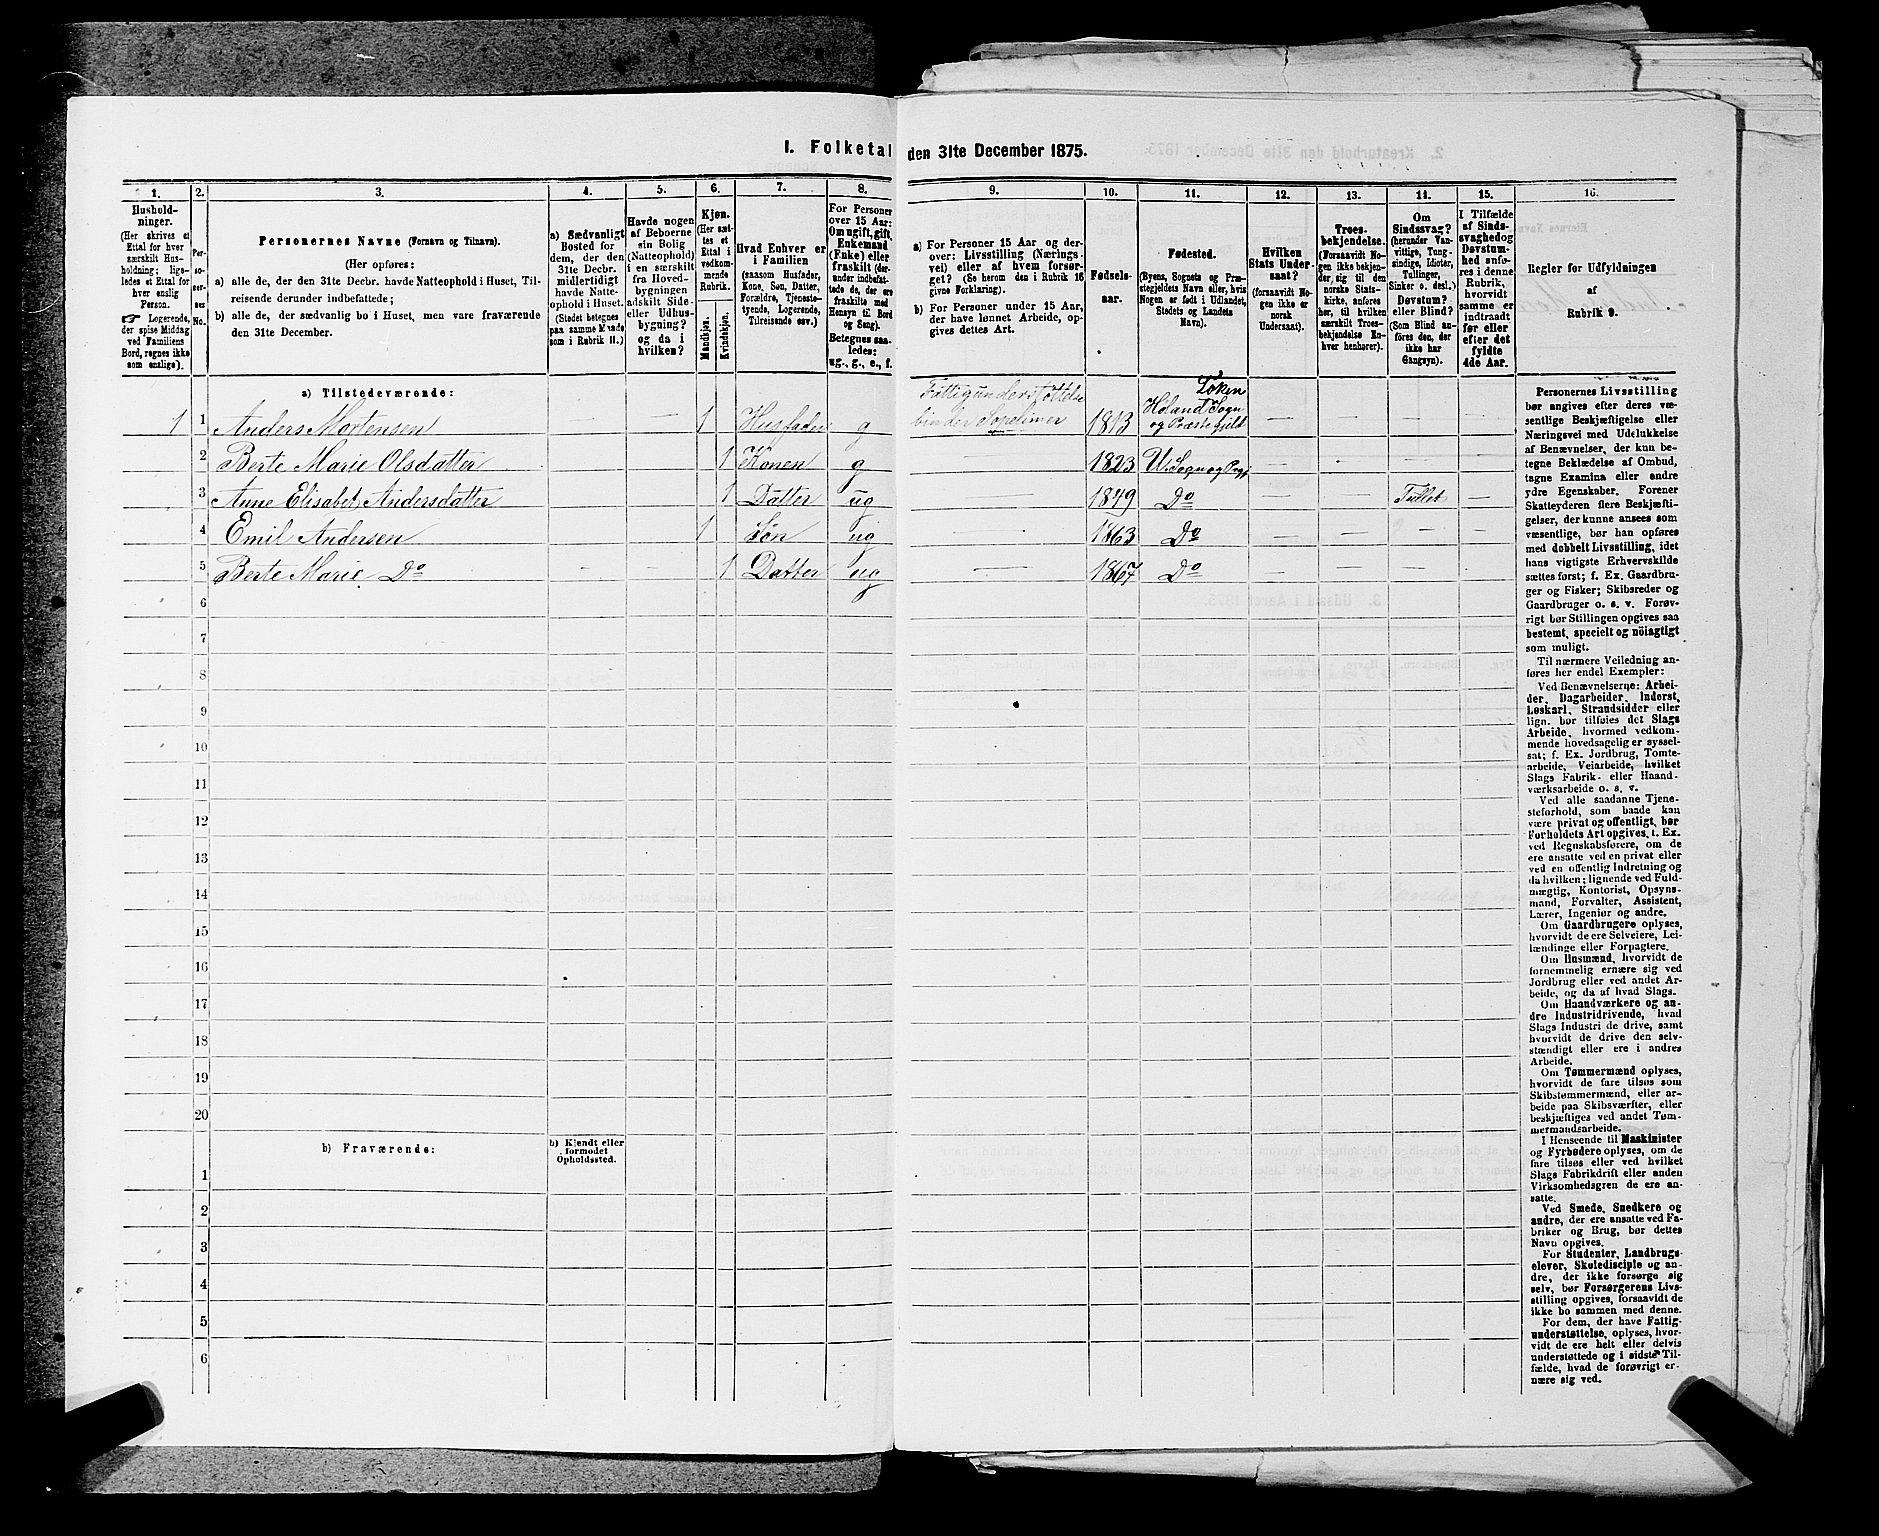 I. Folketal den 31te December 1875.
1. 2. 3. 4. 5. 6. 7. 8. 9. 10. 11. 12. 13. 14. 15. 16.
Hushold-
ninger.
(Her skrives et
Ettal for hver
særskilt Hus-
holdning; lige-
ledes et Ettal for
hver enslig
Person.
☞ Logerende,
der spise Middag
ved Familiens
Bord, regnes ikke
som enslige).
Per-
so-
ner-
nes
No.
Personernes Navne (Fornavn og Tilnavn).
(Her opføres:
a) alle de, der den 31te Decbr. havde Natteophold i Huset, Til-
reisende derunder indbefattede;
b) alle de, der sædvanlig bo i Huset, men vare fraværende
den 31te December.
a) Sædvanligt
Bosted for
dem, der den
31te Decbr.
midlertidigt
havde Natte-
ophold i Huset.
(Stedet betegnes
paa samme Maade
som i Rubrik 11.)
Havde nogen
af Beboerne
sin Bolig
(Natteophold)
i en særskilt
fra Hoved-
bygningen
adskilt Side-
eller Udhus-
bygning?
og da i
hvilken?
Kjøn.
(Her sæt-
tes et
Ettal i
vedkom-
mende
Rubrik.
Mandkjøn.
Kvindekjøn.
Hvad Enhver er
i Familien
(saasom Husfader,
Kone, Søn, Datter,
Forældre, Tjeneste-
tyende, Logerende,
Tilreisende osv.)
For Personer
over 15 Aar:
Om ugift, gift,
Enkemand
(Enke) eller
fraskilt (der-
under indbefat-
tede de, der ere
fraskilte med
Hensyn til Bord
og Seng).
Betegnes saa-
ledes:
ug., g., e., f.
a) For Personer 15 Aar og der-
over: Livsstilling (Nærings-
vei) eller af hvem forsør-
get? (Se herom den i Rubrik 16
givne Forklaring).
b) For Personer under 15 Aar,
der have lønnet Arbeide, op-
gives dettes Art.
Fødsels-
aar.
Fødested.
(Byens, Sognets og Præ-
stegjeldets Navn eller, hvis
Nogen er født i Udlandet,
Stedets og Landets
Navn).
Hvilken
Stats Under-
saat?
(forsaavidt No-
gen ikke er
norsk
Undersaat).
Troes-
bekjendelse.
(Forsaavidt No-
gen ikke bekjen-
der sig til den
norske Stats-
kirke, anføres
her, til hvilken
særskilt Troes-
bekjendelse En-
hver henhører).
Om
Sindssvag?
(herunder Van-
vittige, Tung-
sindige, Idioter,
Tullinger,
Sinker o. desl.)
Døvstum?
eller Blind?
(Som Blind an-
føres den, der
ikke har
Gangsyn).
I Tilfælde
af Sinds-
svaghed og
Døvstum-
hed anfø-
res i denne
Rubrik,
hvorvidt
samme er
indtraadt
før eller
efter det
fyldte
4de Aar.
Regler for Udfyldningen
af
Rubrik 9.
a) Tilstedeværende:
1 1 Anders Mortensen — — 1 Husfader g Fattigunderstøttelse binder 1813 Løken Høland Sogn og Præstegjeld — — — —
2 Berte Marie Olsdatter — — 1 Konen g 1823 U. Sogn og — — — —
3 Anne Elisabet Andersdatter — — 1 Datter ug — 1849 Do — — Tullet —
4 Emil Andersen — — 1 Søn ug — 1863 Do — — — —
5 Berte Marie Do — — 1 Datter ug — 1867 Do — — — —
6
7
8
9
10
11
12
13
14
15
16
17
18
19
20
b) Fraværende:
b) Kjendt eller
formodet
Opholdssted.
1
2
3
4
5
6
Personernes Livsstilling
bør angives efter deres væ-
sentlige Beskjæftigelse eller
Næringsvei med Udelukkelse
af Benævnelser, der kun be-
tegne Beklædelse af Ombud,
tagne Examina eller andre
ydre Egenskaber. Forener
Skatteyderen flere Beskjæfti-
gelser, der kunne ansees som
væsentlige, bør han opføres
med dobbelt Livsstilling, idet
hans vigtigste Erhvervskilde
sættes først; f. Ex. Gaardbru-
ger og Fisker; Skibsreder og
Gaardbruger o. s. v. Forøv-
rigt bør Stillingen opgives saa
bestemt, specielt og nöiagtigt
som muligt.
Til nærmere Veiledning an-
føres her endel Exempler:
Ved Benævnelserne: Arbei-
der, Dagarbeider, Inderst,
Løskarl, Strandsidder eller
lign. bør tilføies det Slags
Arbeide, hvormed vedkom-
mende hovedsagelig er syssel-
sat; f. Ex. Jordbrug, Tomte-
arbeide, Veiarbeide, hvilket
Slags Fabrik- eller Haand-
værksarbeide o. s. v.
Ved alle saadanne Tjene-
steforhold, som baade kan
være privat og offentligt, bør
Forholdets Art opgives, t. Ex.
ved Regnskabsførere, om de
ere ansatte ved en privat eller
ved en offentlig Indretning og
da hvilken; lignende ved Fuld-
mægtig, Kontorist, Opsyns-
mand, Forvalter, Assistent,
Lærer, Ingeniør og andre.
Om Gaardbrugere oplyses,
hvorvidt de ere Selveiere, Lei-
lændinge eller Forpagtere.
Om Husmænd, hvorvidt de
fornemmelig ernære sig ved
Jordbrug eller ved andet Ar-
beide, og da af hvad Slags.
Om Haandværkere og an-
dre Industridrivende, hvad
Slags Industri de drive, samt
hvorvidt de drive den selv-
stændigt eller ere i andres
Arbeide.
Om Tømmermænd oplyses,
hvorvidt de fare tilsøs som
Skibstømmermænd, eller ar-
beide paa Skibsværfter, eller
beskjæftiges ved andet Tøm-
mermandsarbeide.
I Henseende til Maskinister
og Fyrbødere oplyses, om de
fare tilsøs eller ved hvilket
Slags Fabrikdrift eller anden
Virksomhedsgren de ere an-
satte.
Ved Smede, Snedkere og
andre, der ere ansatte ved Fa-
briker og Brug, bør dettes
Navn opgives.
For Studenter, Landbrugs-
elever, Skoledisciple og an-
dre, der ikke forsørge sig
selv, bør Forsørgerens Livs-
stilling opgives, forsaavidt de
ikke bo sammen med denne.
For dem, der have Fattig-
understøttelse, oplyses, hvor-
vidt de ere helt eller delvis
understøttede og i sidste Til-
fælde, hvad de forøvrigt er-
nære sig ved.